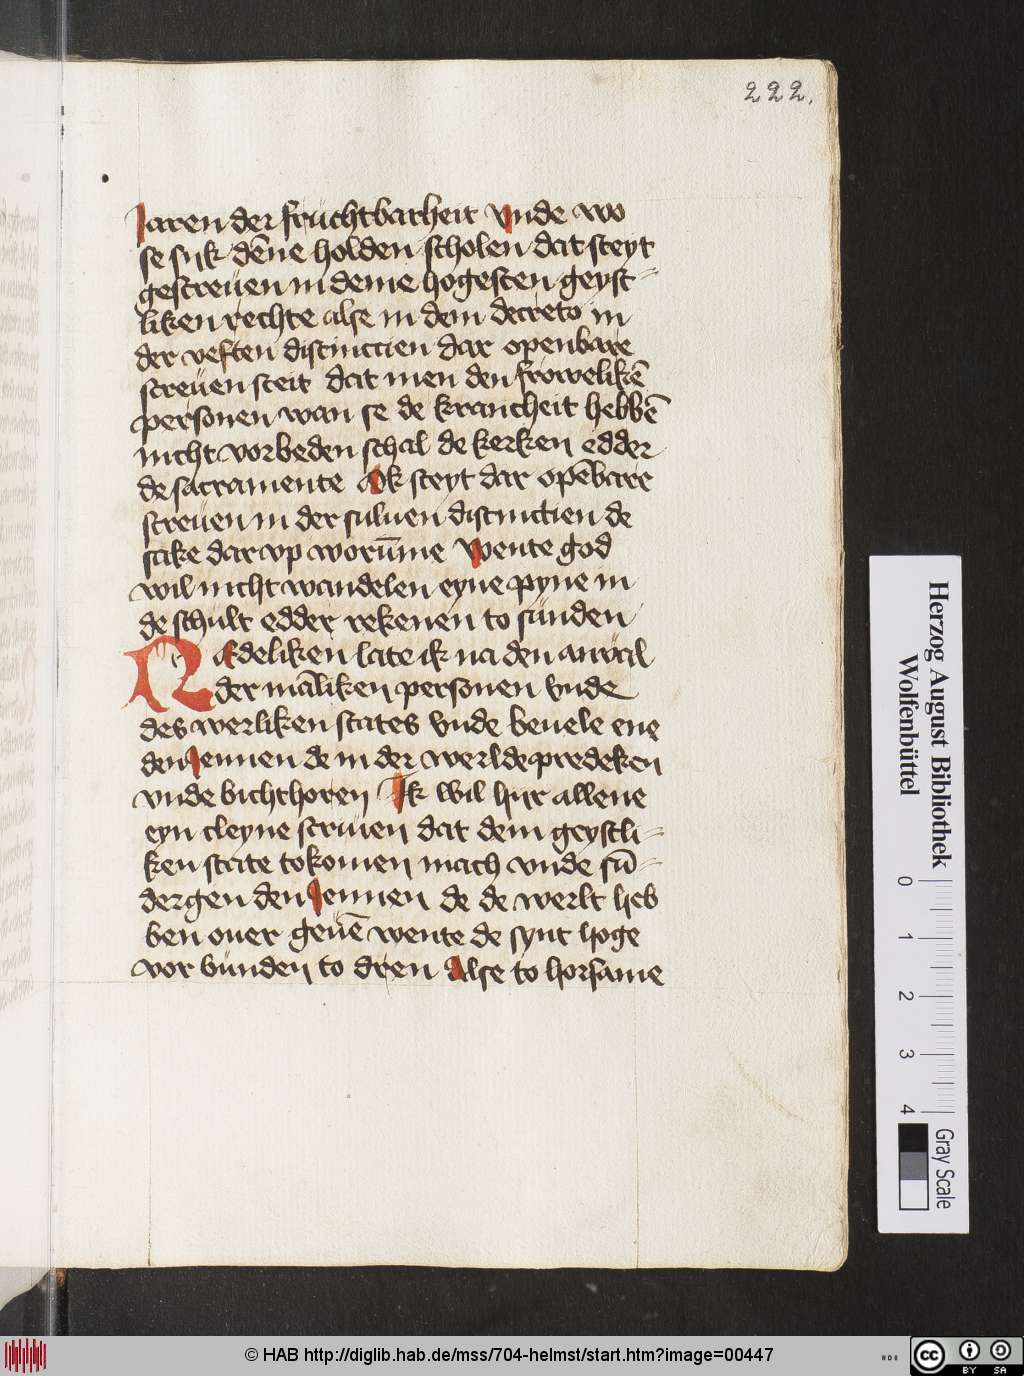 222.
Jaren der fruchtbarheit vnde wo
se sik dēne holden scholen dat steyt
gescreuen in deme hogesten geyst-
liken rechte alse in dem decreto in
der veften distinctien dar openbare
screuen steit dat men den frowelikē
personen wan se de krancheit hebbē
nicht vorbeden schal de kerken edder
de sacramente Ok steyt dar opēbare
screuen in der suluen distinctien de
sake dar vp worūme wente god
wil nicht wandelen eyne pyne in
de schult edder rekenen to sunden
Nakdeliken late ik na den
der māliken personen vnde
des werliken states vnde beuele ene
den Jennen de in der werlde predeken
vnde bichthoren Ik wil hijr allene
eyn cleyne scriuen dat dem geystli-
ken state tokomen mach vnde sū-
dergen den Jennen de de werlt heb
ben ouer geuē wente de synt hoge
vor bunden to dren Alse to horsame
Herzog August Bibliothek
Wolfenbüttel
0 1 2 3 4
Gray Scale
© HAB http://diglib.hab.de/mss/704-helmst/start.htm?image=00447
cc BY SA